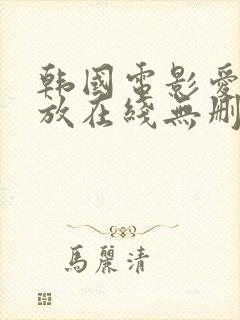 韩國電影愛
放在綫無删
馬麗清